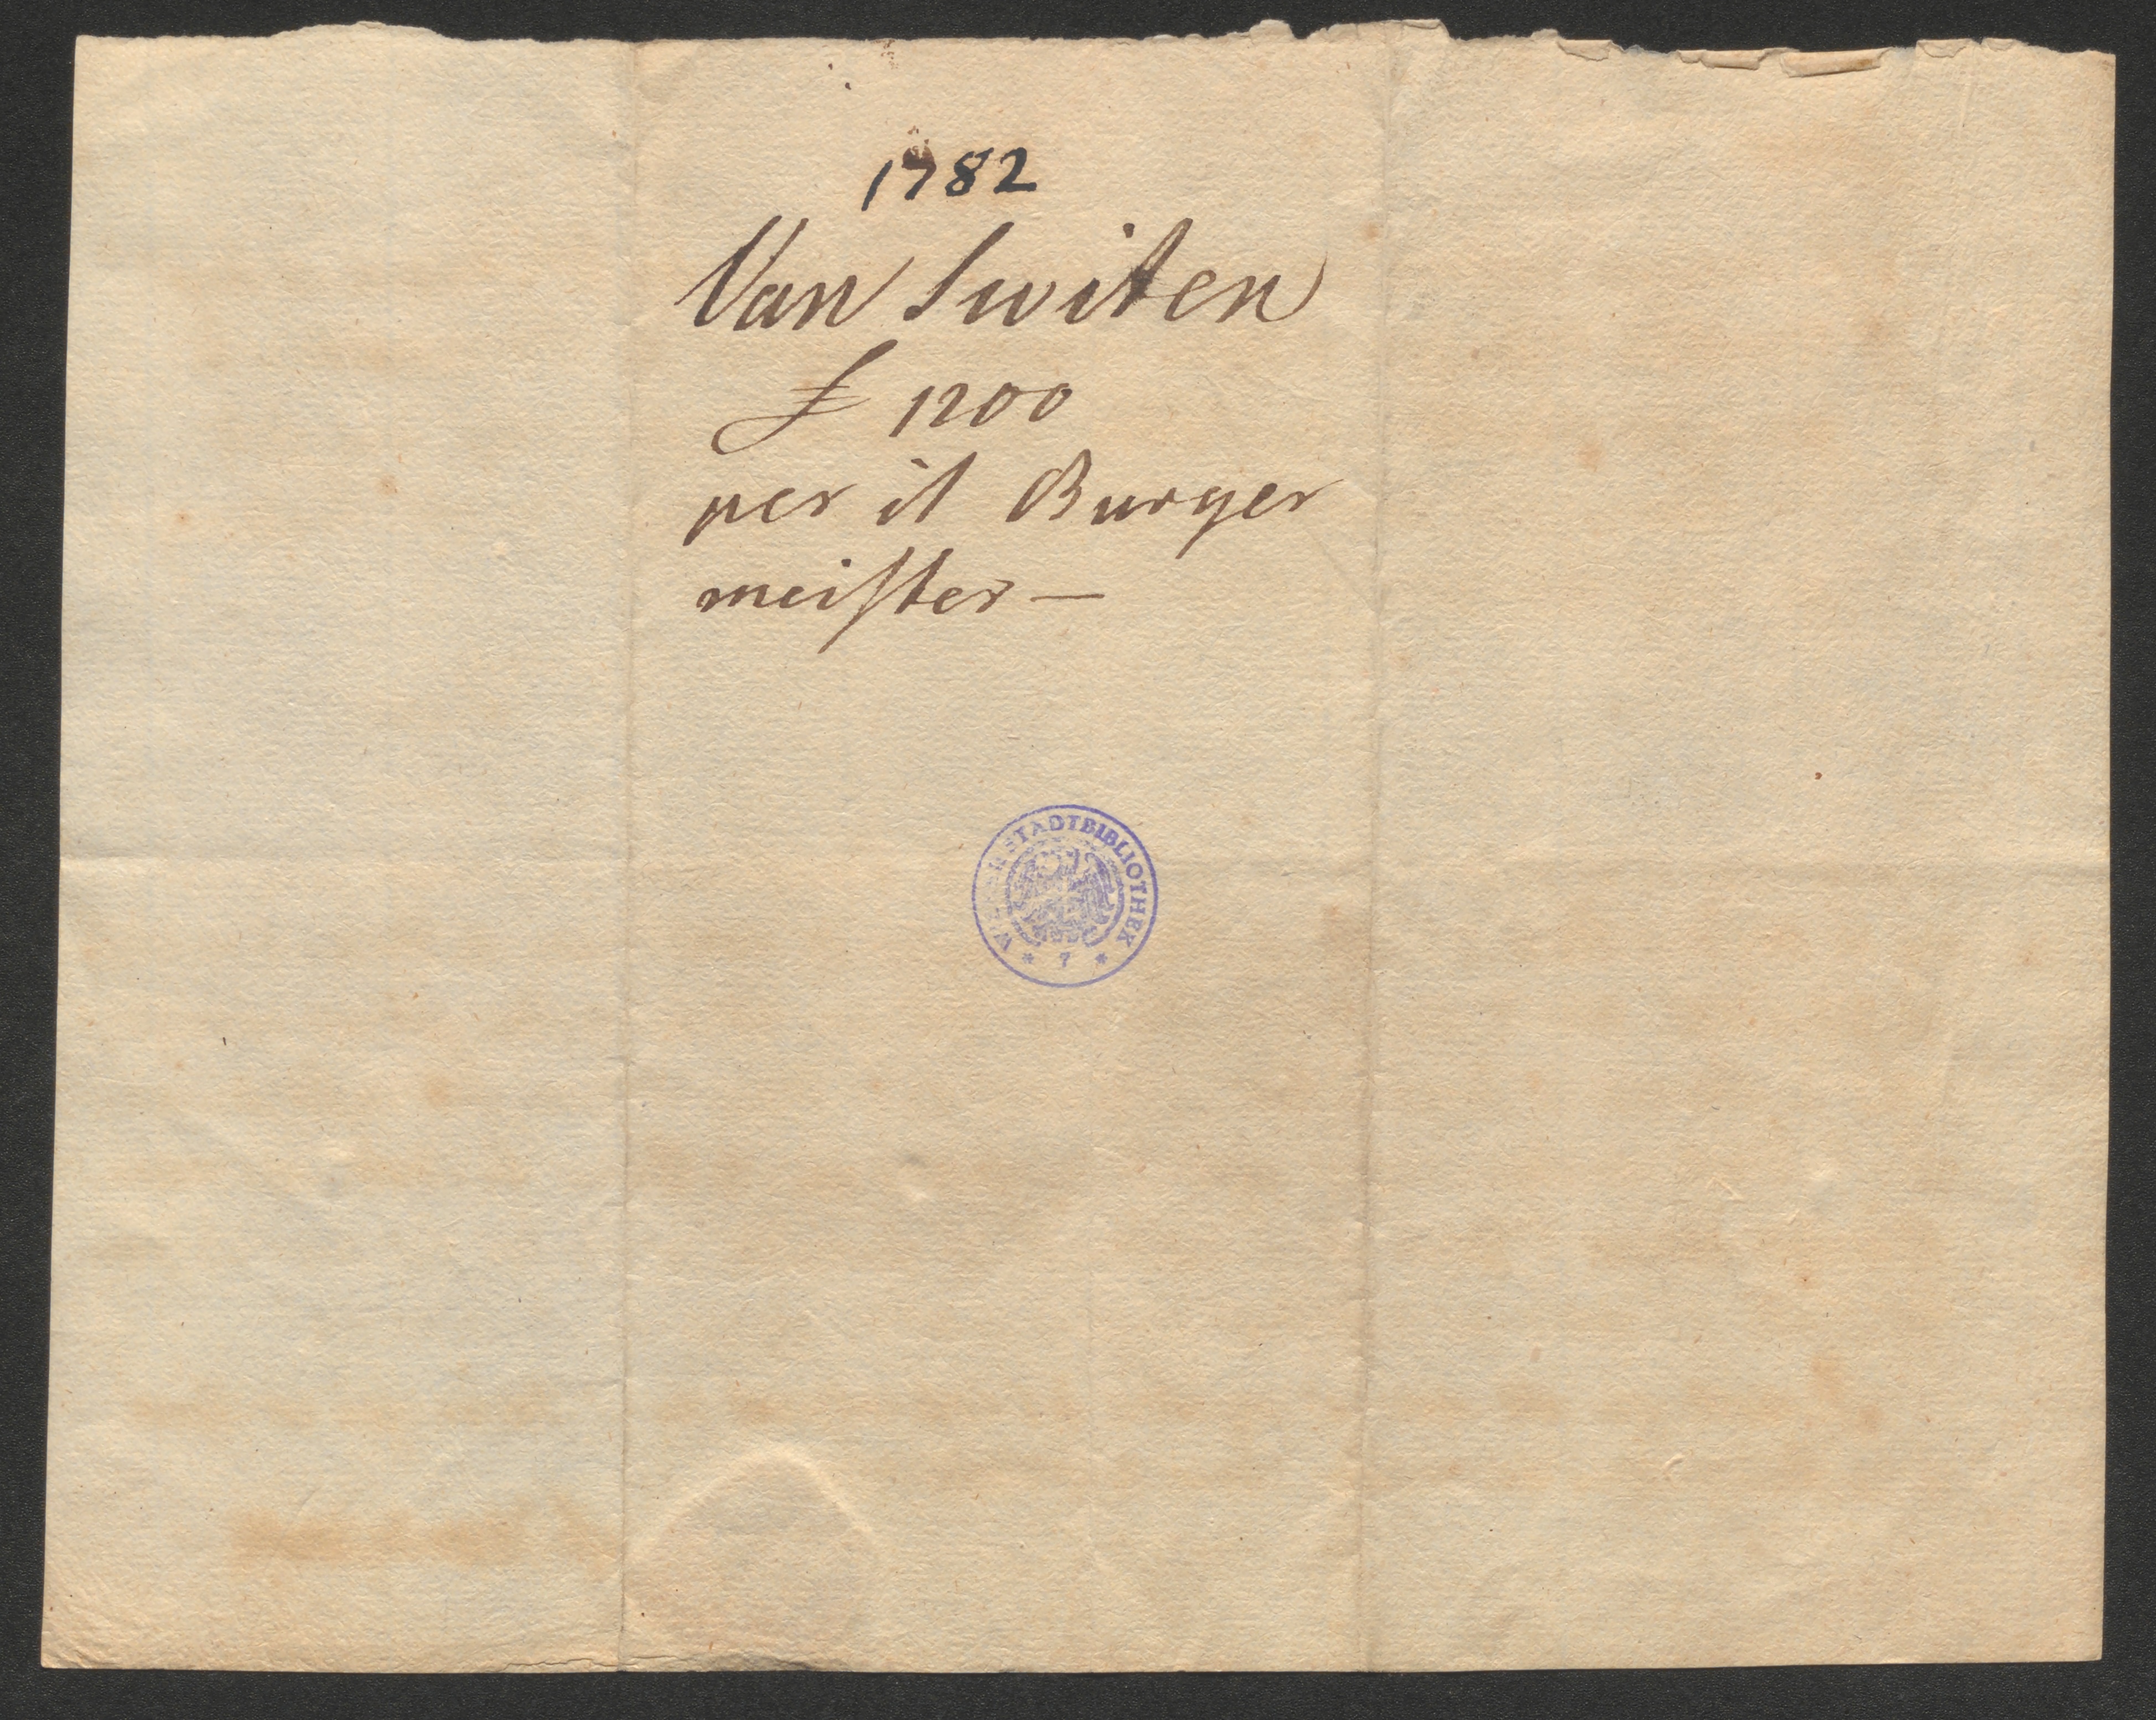 1782
Van Switen
f 1200
per il Burger
meister —
WIENER STADTBIBLIOTHEK
* 7 *